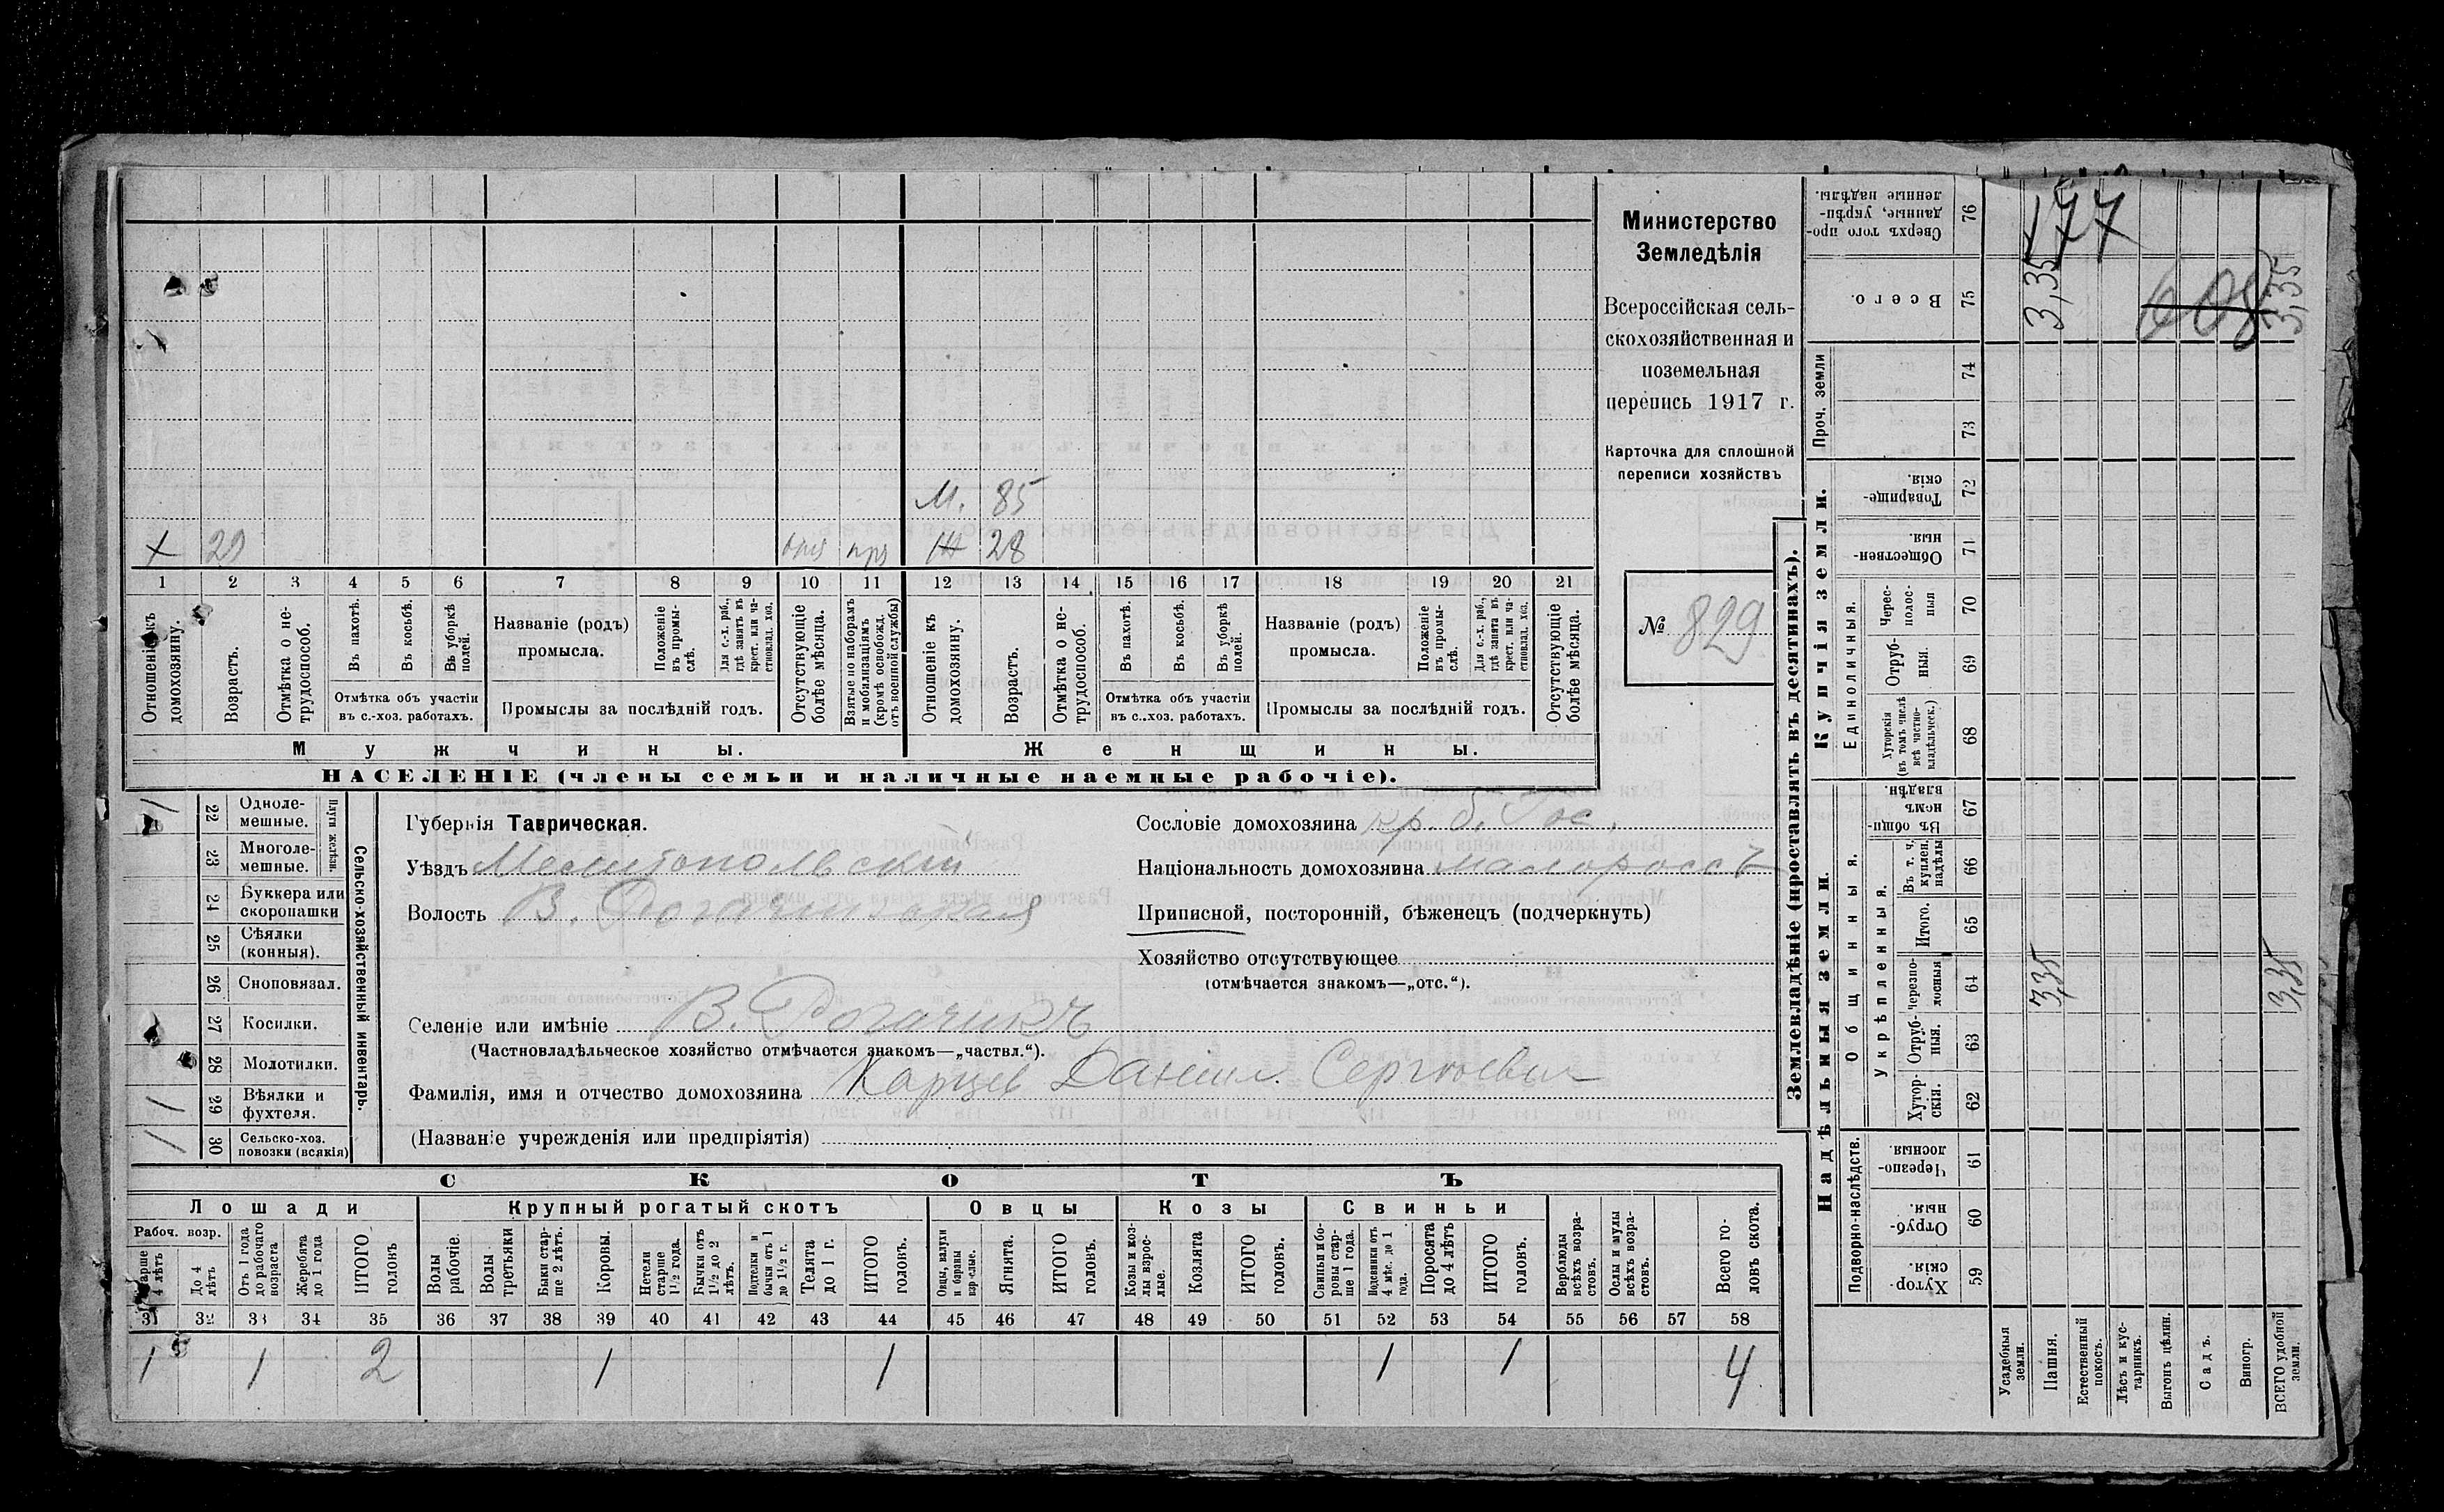 Министерство
Земледѣлія
Всероссійская сель-
скохозяйственная и
поземельная
перепись 1917 г.
Карточка для сплошной
переписи хозяйствъ
№ 829
М. 85
х 29 жж 28
1 2 3 4 5 6 7 8 9 10 11 12 13 14 15 16 17 18 19 20 21
Отношеніе къ домохозяину.
Возрастъ.
Отмѣтка о не-трудоспособ.
Въ пахотѣ.
Въ косьбѣ.
Въ уборкѣ полей.
Отмѣтка объ участіи
въ с.-хоз. работахъ.
Названіе (родъ)
промысла.
Положеніе въ промы-слѣ.
Для с.-х. раб., гдѣ занятъ въ крест. или ча-стновлад. хоз.
Промыслы за послѣдній годъ.
Отсутствующіе болѣе мѣсяца.
Взятые по наборамъ и мобилизаціямъ (кромѣ освобожд. отъ военной службы)
Отношеніе къ домохозяину.
Возрастъ.
Отмѣтка о не-трудоспособ.
Въ пахотѣ.
Въ косьбѣ.
Въ уборкѣ полей.
Отмѣтка объ участіи
въ с.-хоз. работахъ.
Названіе (родъ)
промысла.
Положеніе въ промы-слѣ.
Для с.-х. раб., гдѣ занята въ крест. или ча-стновлад. хоз.
Промыслы за послѣдній годъ.
Отсутствующіе болѣе мѣсяца.
Мужчины. Женщины.
НАСЕЛЕНІЕ (члены семьи и наличные наемные рабочіе).
Сельско-хозяйственный инвентарь.
Плуги желѣзн.
1 22 Одноле-мешные.
23 Многоле-мешные.
24 Буккера или скоропашки
25 Сѣялки (конныя).
26 Сноповязал.
27 Косилки.
28 Молотилки.
1 29 Вѣялки и фухтеля.
1 30 Сельско-хоз. повозки (всякія)
Губернія Таврическая.
Уѣздъ Мелитопольскій
Волость В. Рогачикская
Селеніе или имѣніе В. Рогачикъ
(Частновладѣльческое хозяйство отмѣчается знакомъ—„частвл.“).
Фамилія, имя и отчество домохозяина Карцев Даніил. Сергѣевич
(Названіе учрежденія или предпріятія)
Сословіе домохозяина кр. б. Гос.
Національность домохозяина малороссъ
Приписной, посторонній, бѣженецъ (подчеркнуть)
Хозяйство отсутствующее
(отмѣчается знакомъ—„отс.“).
СКОТЪ
Лошади Крупный рогатый скотъ Овцы Козы Свиньи
Рабоч. возр.
Старше 4 лѣтъ
До 4 лѣтъ
Отъ 1 года до рабочаго возраста
Жеребята до 1 года
ИТОГО головъ
Волы рабочіе.
Волы третьяки
Быки стар-ше 2 лѣтъ.
Коровы.
Нетели старше 1½ года.
Бычки отъ 1½ до 2 лѣтъ.
Подтелки и бычки отъ 1 до 1½ г.
Телята до 1 г.
ИТОГО головъ.
Овцы, валухи и бараны взрослые.
Ягнята.
ИТОГО головъ.
Козы и коз-лы взрос-лые.
Козлята
ИТОГО головъ.
Свиньи и бо-ровы стар-ше 1 года.
Подсвинки отъ 4 мѣс. до 1 года.
Поросята до 4 лѣтъ
ИТОГО головъ.
Верблюды всѣхъ возра-стовъ.
Ослы и мулы всѣхъ возра-стовъ.
Всего го-ловъ скота.
31 32 33 34 35 36 37 38 39 40 41 42 43 44 45 46 47 48 49 50 51 52 53 54 55 56 57 58
1 1 2 1 1 1 1 4
Землевладѣніе (проставлять въ десятинахъ).
Надѣльныя земли. Купчія земли. Проч. земли
Подворно-наслѣдств.
Общинныя.
Укрѣпленныя.
Единоличныя.
59 Хутор-скія.
60 Отруб-ныя.
61 Черезпо-лосныя
62 Хутор-скія.
63 Отруб-ныя.
64 Черезпо-лосныя
65 Итого.
66 Въ т. ч. куплен. надѣлы
67 Въ общи-нномъ владѣн.
68 Хуторскія (въ томъ числѣ всѣ частно-владѣльческ.)
69 Отруб-ныя.
70 Черес-полос-ныя
71 Обществен-ныя.
72 Товарище-скія.
73
74
75 Всего.
76 Сверхъ того про-данные, укрѣп-ленные надѣлы.
Усадебныя земли.
Пашня.
Естественный покосъ.
Лѣсъ и кус-тарникъ.
Выгонъ цѣлин.
Садъ.
Виногр.
ВСЕГО удобной земли.
3,35 3,35
3,35 3,35
177
608